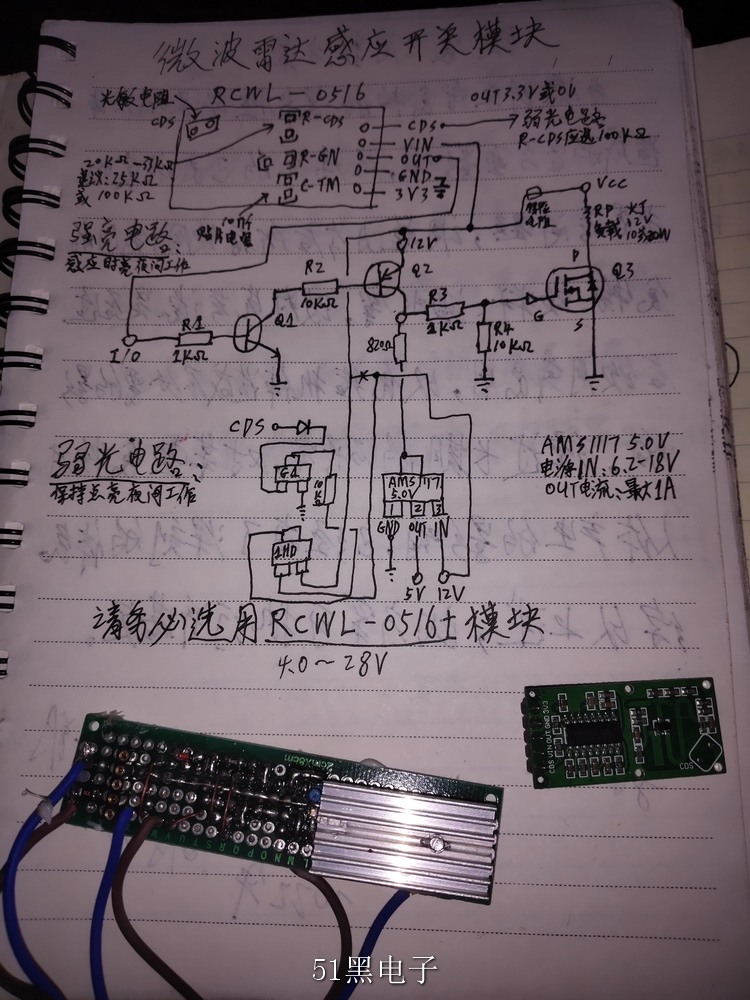 微波雷达感应开关模块
光敏电阻 RCWL-0516 OUT3.3V或0V
CDS R-CDS CDS 弱光电路
R-CDS应选100KΩ
VIN
20KΩ-33KΩ R-GN OUT
建议:25KΩ GND
或100KΩ C-TM 3V3
10nf
贴片电容
VCC
RP 灯
负载 12V
强亮电路:
感应时亮夜间工作
12V
R2 Q2 D Q3
10KΩ
R3 G S
1KΩ
R1 Q1 R4
1KΩ 10KΩ
I/O 820Ω
CDS
弱光电路:
保持点亮夜间工作
G1 10KΩ
AMS1117 5.0V
电源IN:6.2-18V
OUT电流:最大1A
AMS 1117
5.0V
1 2 3
GND OUT IN
1HD
5V 12V
请务必选用RCWL-0516士模块
4.0~28V
2cmX8cm
CDS VIN OUT GND 3V3
CDS
L M N O P Q R S T U V
51黑电子